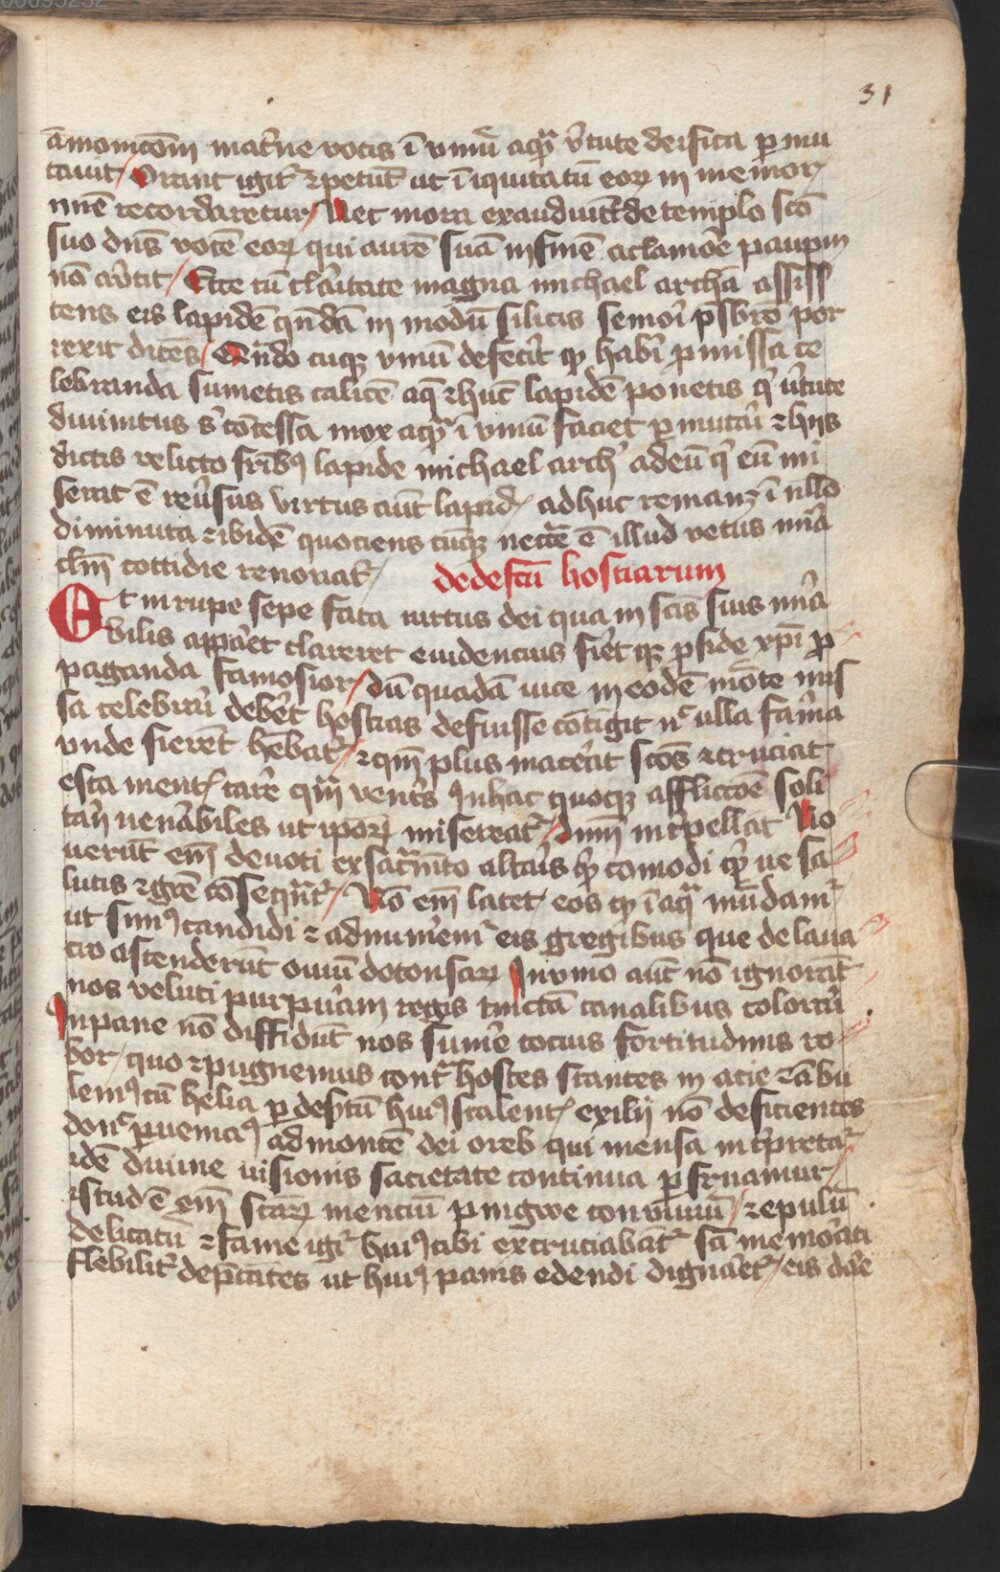 31
āmonicōm mat̄ne vocis ī vinū aqꝫ v̄tute deifica ꝑmu
tavit / Orant igit᷑ ⁊ petūt ut ī iquitatū eoꝝ in memor
nnē recordaretur / Nec mora exaudivit de templo sc̄o
suo dn̄s vocē eoꝝ qui aurē suā in finē a clamōe paupm
nō av̄tit / Ecce cū cla᷑itate magna michael archā assis
tens eis lapidē qn̄dā in modū silicis semoī p̄sb̄ro por
rexit dicēs / Qn̄do cuqꝫ vinū defec̄it qͦ habī ꝑ missa ce
lebranda sumetis calicē aq̄ ⁊ hūc lapidē ponetis qͥ v̄tute
divinitus s᷑ cōcessa mox aqͣ ī vinū faciet ꝑmutāi ⁊ hiis
dictis relicto fr̄ibꝫ lapide michael arch᷑ ad eū qͥ eū mi
serat ē rev̄sus virtus aūt lapid᷑ adhuc remanꝫ ī ullo
diminuta ⁊ ibidē quociens cūqꝫ necc̄e ē illud vetus mīa
cl̄m cottidie renovat᷑ /
de defc̄u hostiarum
Et in rupe sepe fata virtus dei qua in sc̄is suis mīa
bilis appāet clareret evidencius fiēt qꝫ ꝑ fide xp̄i ꝓ
paganda famosior / dū quadā vice in eodē mōte mis
sa celebrāi debēt hostias defuisse cōtigit nͨ ulla faīna
unde fierēt hēbat᷑ / ⁊ qm̄ plus mac̄at sc̄os ⁊ cruciat
esca ment᷑ car̄e qm̄ vent̄s In hac quoqꝫ afflictōe soli
tāi ven̄abiles ut ip̄oꝝ misereat᷑ / dnm̄ int̄pellāt No
verūt em̄ devoti ex sac̄mēto altāis qͥ comodi qͥ ve sa
lutis ⁊ gr̄e cōseqūt᷑ / Nō em̄ latet eos qͦ ī aqͣ mūdam᷑
ut simꝰ candidi ⁊ adnumēm᷑ eis gregibus que de lava
cro ascenderūt oviū dotonsaꝝ In vino aūt nō ignorāt
nos veluti purpuāam regis tinctā canalibus colorāi
In pane nō diffidūt nos sumē tocius fortitudinis ro
bor / quo ⁊ pugnemus contͣ hostes stantes in acie ⁊ ābu
lemꝰ cū helia ꝑ desc̄tū huiꝰ scalent᷑ exilij nō deficientes
donͨ ꝑveniaꝰ ad montē dei oreb qui mensa int̄pretat᷑
idē divine visionis sacietate continua ꝑfruamur /
⁊ stud ē em̄ sc̄aꝝ menciū pingwe convīviū / ⁊ epulū
delicatū ⁊ fame igi᷑ huiꝰ cibi excruciabāt᷑ sc̄i memōati
flebilit᷑ dep̄cātes ut huiꝰ panis edendi dignāet᷑ / eis dāe